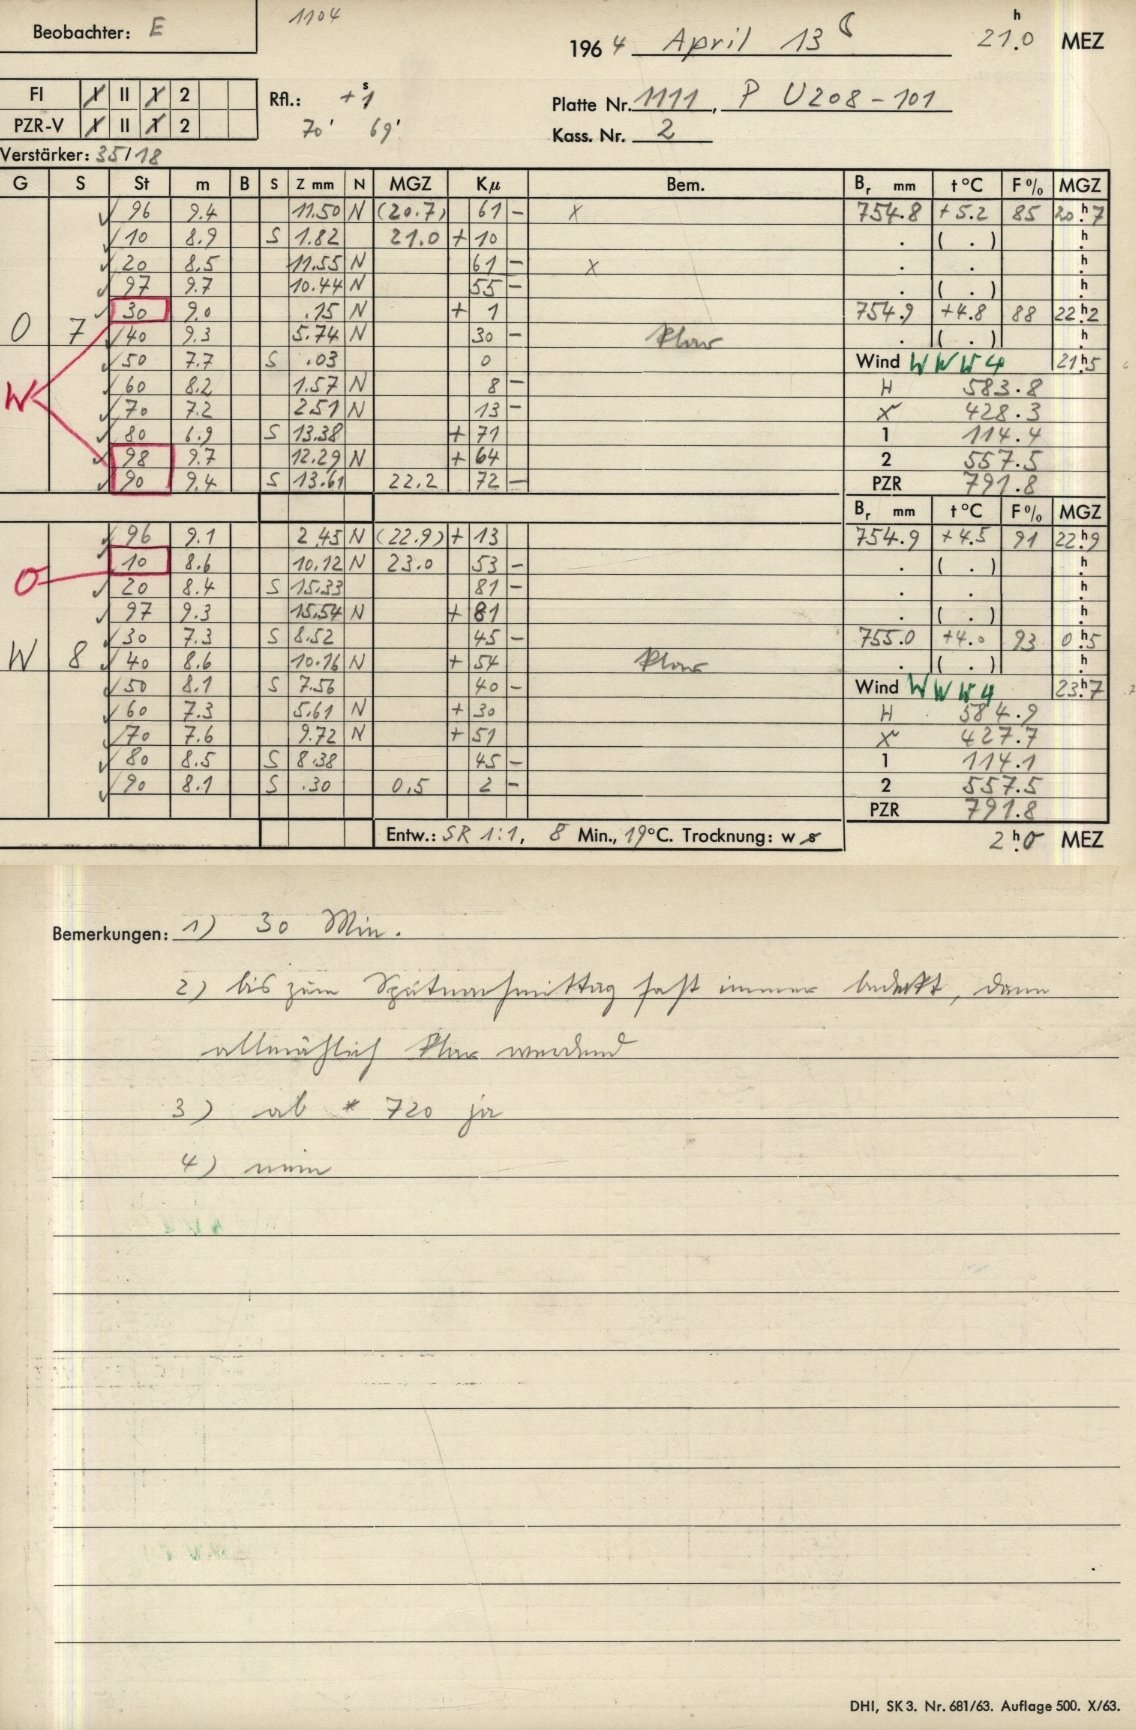 Beobachter: E
1104
1964 April 13
21.0 h MEZ
FI I II 1 2
PZR-V I II 1 2
Rfl.: +1 s
70' 69'
Platte Nr. 1111, P U208-101
Kass. Nr. 2
Verstärker: 35/18
G S St m B S Z mm N MGZ Kµ Bem. Br mm t °C F % MGZ
96 9.4 11.50 N (20.7) 61 - x 754.8 +5.2 85 20h.7
10 8.9 S 1.82 21.0 + 10 . ( . ) h.
20 8.5 11.55 N 61 - x . . h.
97 9.7 10.44 N 55 - . ( . ) h.
30 9.0 .15 N + 1 754.9 +4.8 88 22h.2
O 7 40 9.3 5.74 N 30 - klar . ( . ) h.
50 7.7 S .03 0 Wind WNW4 21h.5
60 8.2 1.57 N 8 - H 583.8
W 70 7.2 2.51 N 13 - X 428.3
80 6.9 S 13.38 + 71 1 114.4
98 9.7 12.29 N + 64 2 557.5
90 9.4 S 13.61 22.2 72 - PZR 791.8
Br mm t °C F % MGZ
96 9.1 2.43 N (22.9) + 13 754.9 +4.5 91 22h.9
10 8.6 10.12 N 23.0 53 - . ( . ) h.
O 20 8.4 S 15.33 81 - . . h.
97 9.3 15.54 N + 81 . ( . ) h.
30 7.3 S 8.52 45 - 755.0 +4.0 93 0h.5
W 8 40 8.6 10.16 N + 54 klar . ( . ) h.
50 8.1 S 7.56 40 - Wind WNW4 23h.7
60 7.3 5.61 N + 30 H 584.9
70 7.6 9.72 N + 51 X 427.7
80 8.5 S 8.38 45 - 1 114.1
90 8.1 S .30 0.5 2 - 2 557.5
PZR 791.8
Entw.: SR 1:1, 8 Min., 19°C. Trocknung: w s
2h.0 MEZ
Bemerkungen: 1) 30 Min.
2) bis zum Spätnachmittag fast immer bedeckt, dann
allmählich klar werdend
3) ab * 720 ja
4) nein
DHI, SK 3. Nr. 681/63. Auflage 500. X/63.